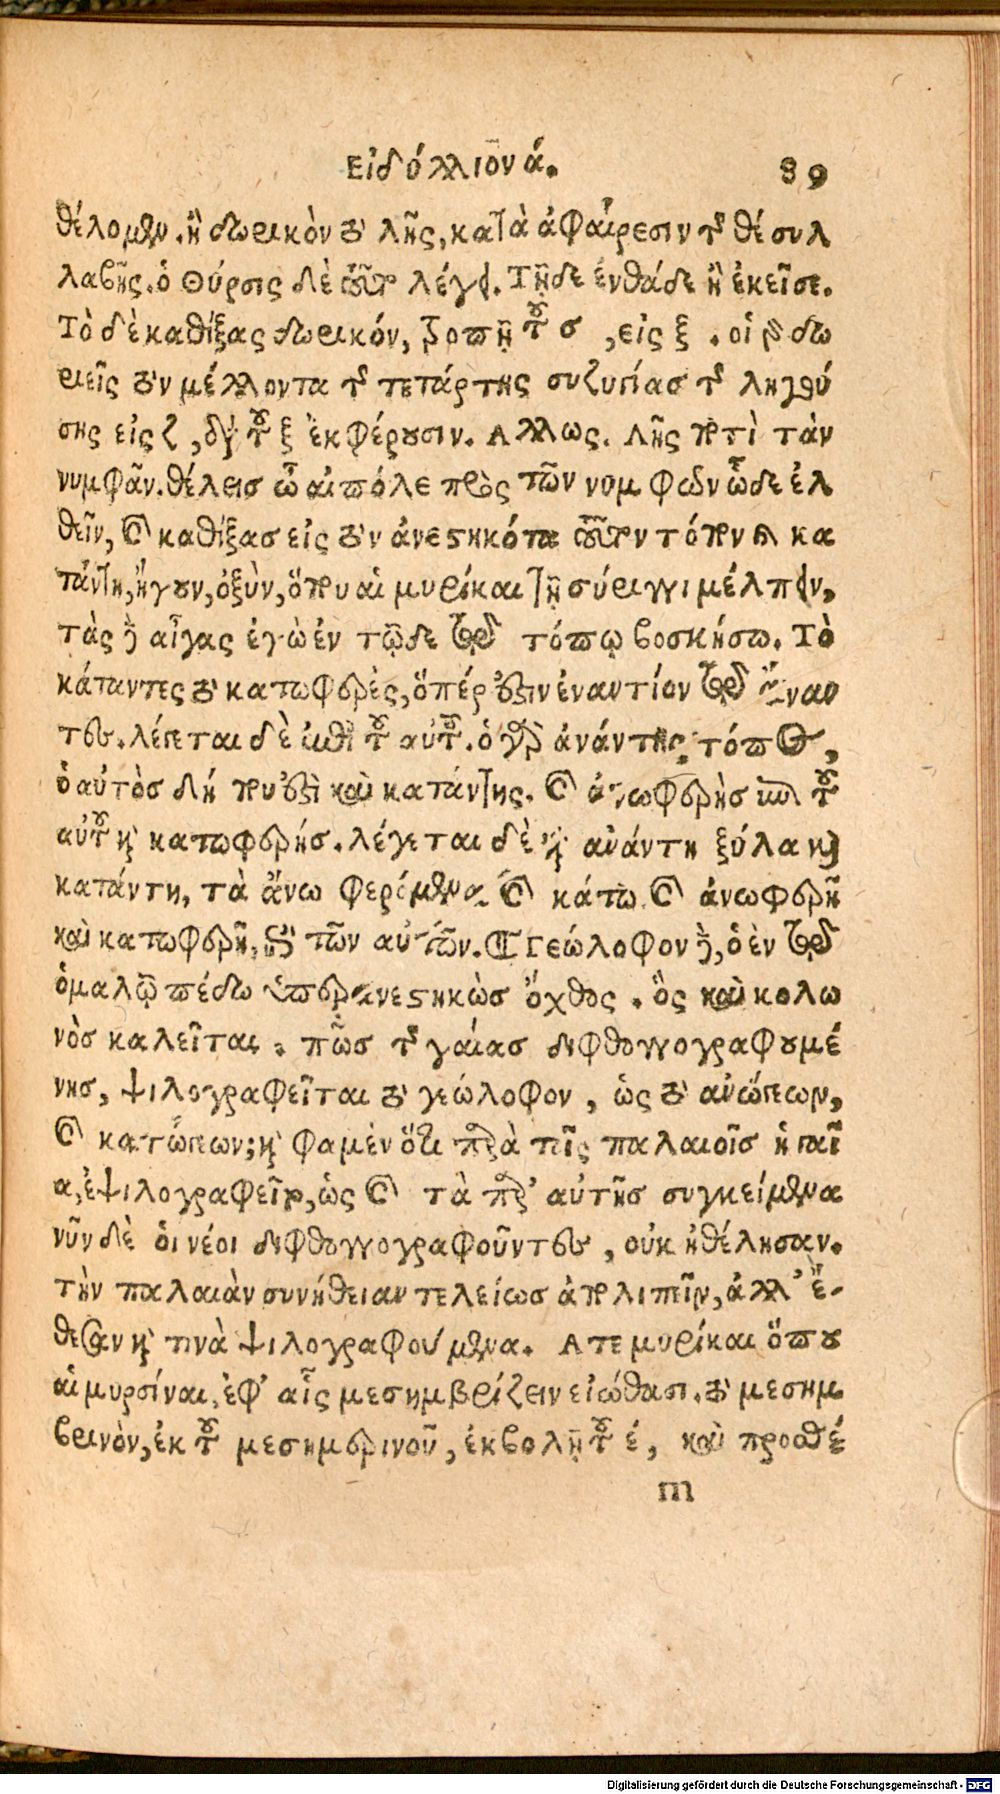 εἰδύλλιον ά. 89
θέλομεν. ἢ δωρικὸν τὸ λῇς, κατὰ ἀφαίρεσιν τῆς θέ συλ
λαβῆς. ὁ Θύρσις δὲ τοῦτο λέγει. Τῇδε ἐνθάδε ἢ ἐκεῖσε.
Τὸ δὲ καθίξας δωρικόν, τροπῇ τοῦ σ, εἰς ξ. οἱ γὰρ δω
ριεῖς τὸν μέλλοντα τῆς τετάρτης συζυγίας τῆς ληγού
σης εἰς ζ, διὰ τοῦ ξ ἐκφέρουσιν. Αλλως. Λῇς ποτὶ τὰν
νυμφᾶν. θέλεισ ὦ αἰπόλε πρὸς τῶν νυμφῶν ὧδε ἐλ
θεῖν, καὶ καθίξασ εἰς τὸν ἀνεστηκότα τοῦτον τόπον καὶ κα
τάντη, ἤγουν, ὀξὺν, ὅπου αἱ μυρίκαι τῇ σύριγγι μέλπειν,
τὰς δὲ αἶγας ἐγὼ ἐν τῷδε τῷ τόπῳ βοσκήσω. Τὸ
κάταντες τὸ κατωφερὲς, ὅπέρ ἐστιν ἐναντίον τῷ ἄναν
τες. λέγεται δὲ ἐπὶ τοῦ αὐτοῦ. ὁ γὰρ ἀνάντης τόπος,
ὁ αὐτὸσ δή που ἐστὶ καὶ κατάντης. καὶ ἀνωφερὴσ ἐπὶ τοῦ
αὐτοῦ καὶ κατωφερής. λέγεται δὲ καὶ ἀνάντη ξύλα καὶ
κατάντη, τὰ ἄνω φερόμενα καὶ κάτω καὶ ἀνωφερῆ
καὶ κατωφερῆ, ἐπὶ τῶν αὐτῶν. ¶ Γεώλοφον δὲ, ὁ ἐν τῷ
ὁμαλῷ πέδω ὑπερανεστηκὼσ ὄχθος. ὃς καὶ κολω
νὸσ καλεῖται. πῶσ τῆς γαίασ διφθογγογραφουμέ
νησ, ψιλογραφεῖται τὸ γεώλοφον, ὡς τὸ ἀνώγεων,
καὶ κατώγεων; καὶ φαμὲν ὅτι παρὰ τοῖς παλαιοῖσ ἡ γαῖ
α, ἐψιλογραφεῖτο, ὡς καὶ τὰ παρ' αὐτῆσ συγκείμενα
νῦν δὲ ὁι νέοι διφθογγογραφοῦντες, οὐκ ἠθέλησαν.
τὴν παλαιὰν συνήθειαν τελείωσ ἀπολιπεῖν, ἀλλ' ἔ-
θεσαν καὶ τινὰ ψιλογραφούμενα. Ατε μυρίκαι ὅπου
αἱ μυρσίναι, ἐφ' αἷς μεσημβρίζειν εἰώθασι. τὸ μεσημ
βρινὸν, ἐκ τοῦ μεσημβρινοῦ, ἐκβολῇ τοῦ έ, καὶ προσθέ
m
Digitalisierung gefördert durch die Deutsche Forschungsgemeinschaft - DFG